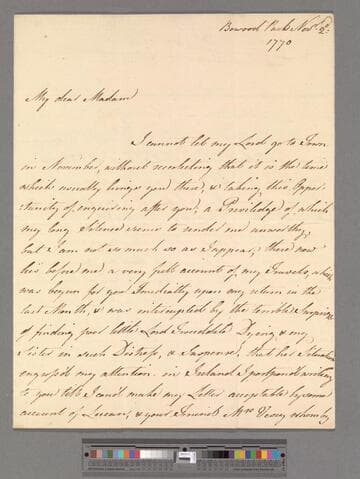 Bowood Park Nov.r 2.d
1770
My dear Madam
I cannot let my Lord go to Town
in November, without recollecting that it is the time
which usually brings you there, & taking this Oppor-
tunity of enquiring after you, a Priviledge of which
my long Silence seems to render me unworthy,
but I am not so much so as I appear, there now
lies before me a very full account of my Travels, which
was begun for you Imediatly upon my return in the
last Month, & was interrupted by the terrible Surprise
of finding poor little Lord Dying & my
Sister in such Distress, & Suspence, that her Situation
engross'd my attention. in Ireland I postponed writing
to you till I cou'd make my Letter acceptable by some
account of Lucan, & your Friend Mrs Vesey whom by